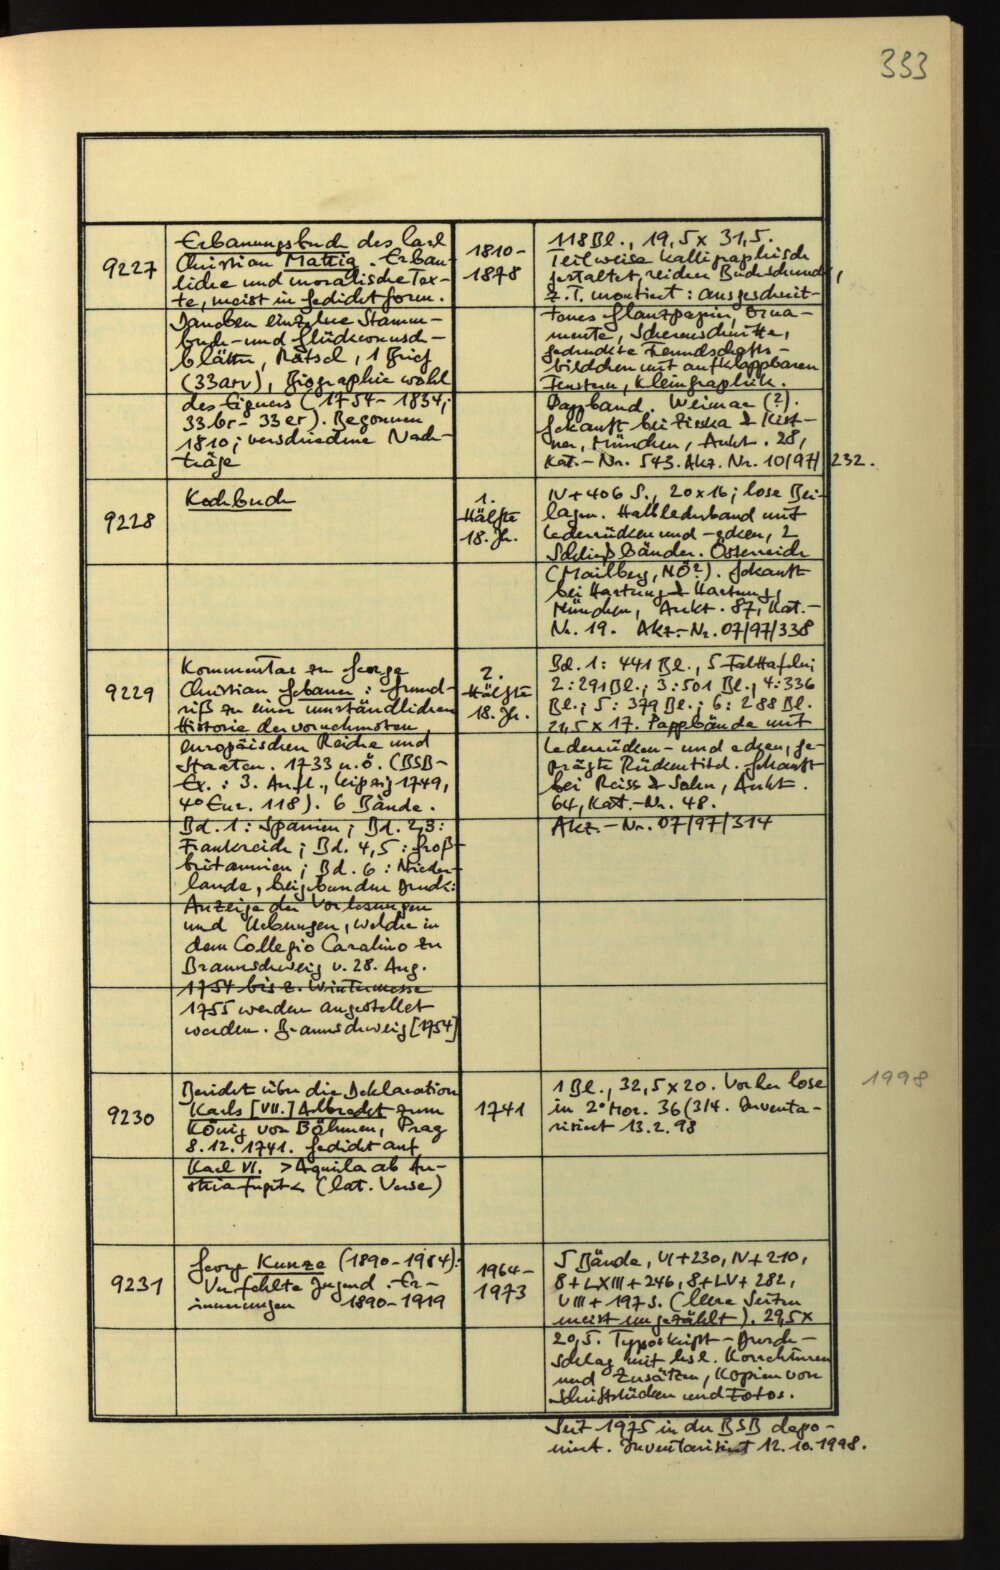 333
9227
Erbauungsbuch des Carl
Christian Mattig. Erbau-
liche und moralische Tex-
te, meist in Gedichtform.
Daneben einzelne Stamm-
buch- und Glückwunsch-
blätter, Rätsel, 1 Brief
(33arv), Biographie wohl
des Eigners (1754-1834;
33br-33er). Begonnen
1810; verschiedene Nach-
träge
1810-
1878
118 Bl., 19,5 x 31,5.
Teilweise kalligraphisch
gestaltet, reicher Buchschmuck,
z.T. montiert: ausgeschnit-
tenes Glanzpapier, Orna-
mente, Scherenschnitte,
gedruckte Freundschafts-
bildchen mit aufklappbaren
Fenstern, Kleingraphik.
Pappband. Weimar (?).
Gekauft bei Zisska & Kist-
ner, München, Aukt. 28,
Kat.-Nr. 543. Akz. Nr. 10/97/232.
9228
Kochbuch
1.
Hälfte
18. Jh.
IV + 406 S., 20 x 16; lose Bei-
lagen. Halblederband mit
Lederrücken und -ecken, 2
Schließbänder. Österreich
(Mailberg, NÖ?). Gekauft
bei Hartung & Hartung,
München, Aukt. 87, Kat.-
Nr. 19. Akz.-Nr. 07/97/338
9229
Kommentar zu George
Christian Gebauer: Grund-
riß zu einer umständlichen
Historie der vornehmsten
europäischen Reiche und
Staaten. 1733 u.ö. (BSB-
Ex.: 3. Aufl., Leipzig 1749,
4° Eur. 118). 6 Bände.
Bd. 1: Spanien; Bd. 2,3:
Frankreich; Bd. 4,5: Groß-
britannien; Bd. 6: Nieder-
lande, beigebunden Druck:
Anzeige der Vorlesungen
und Uebungen, welche in
dem Collegio Carolino zu
Braunschweig v. 28. Aug.
1754 bis z. Wintermesse
1755 werden angestellet
werden. Braunschweig [1754]
2.
Hälfte
18. Jh.
Bd. 1: 441 Bl., 5 Falttafeln;
2: 291 Bl.; 3: 501 Bl.; 4: 336
Bl.; 5: 379 Bl.; 6: 288 Bl.
21,5 x 17. Pappbände mit
Lederrücken- und ecken, ge-
prägte Rückentitel. Gekauft
bei Reiss & Sohn, Aukt.
64, Kat.-Nr. 48.
Akz.-Nr. 07/97/314
9230
Bericht über die Deklaration
Karls [VII.] Albrecht zum
König von Böhmen, Prag
8.12.1741. Gedicht auf
Karl VI. >Aquila ab Au-
stria fugit< (lat. Verse)
1741
1 Bl., 32,5 x 20. Vorher lose
in 2° Mor. 36(3/4. Inventa-
risiert 13.2.98
1998
9231
Georg Kunze (1890-1984):
Verfehlte Jugend. Er-
innerungen 1890-1919
1964-
1973
5 Bände, VI+230, IV+210,
8+LXIII+246, 8+LV+282,
VIII+197 S. (leere Seiten
meist ungezählt). 29,5 x
20,5. Typoskript-Durch-
schlag mit hsl. Korrekturen
und Zusätzen, Kopien von
Schriftstücken und Fotos.
Seit 1975 in der BSB depo-
niert. Inventarisiert 12.10.1998.